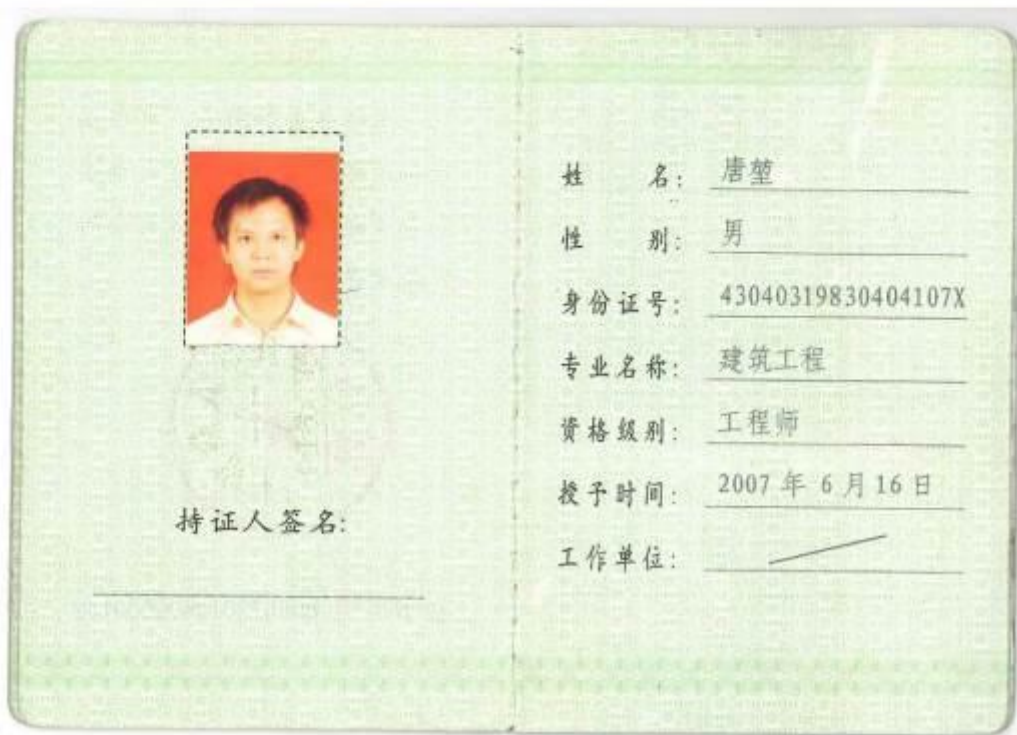 持证人签名:
姓 名: 唐堃
性 别: 男
身份证号: 43040319830404107X
专业名称: 建筑工程
资格级别: 工程师
授予时间: 2007 年 6 月 16 日
工作单位: